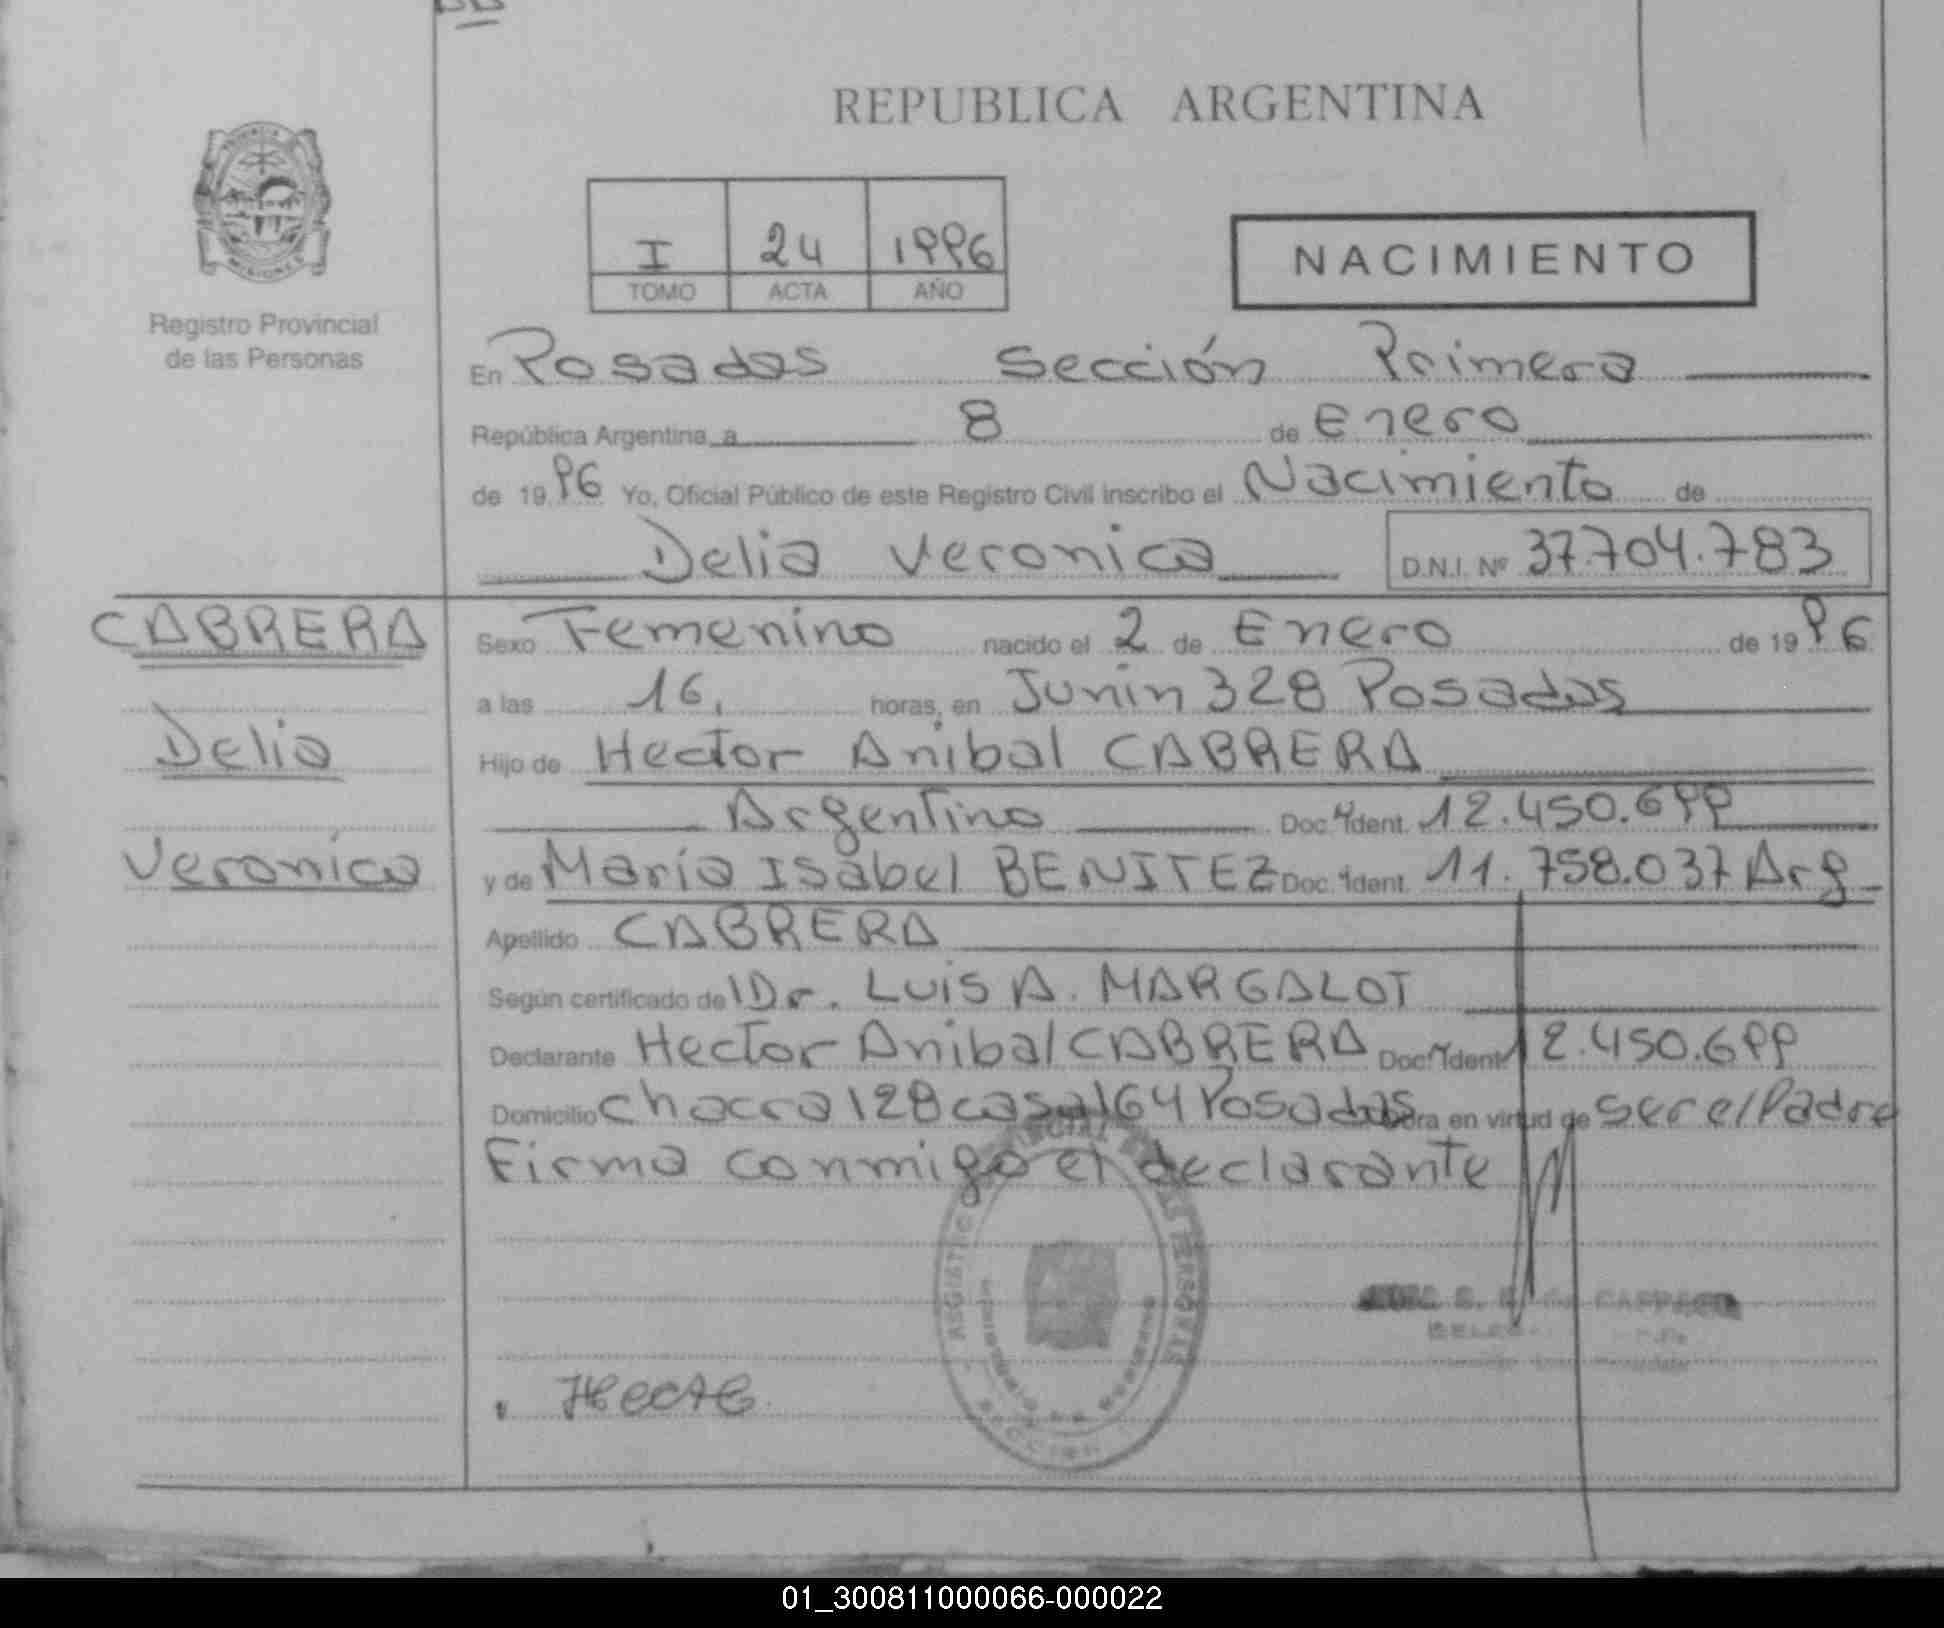 REPUBLICA ARGENTINA
I 24 1996
TOMO ACTA AÑO
NACIMIENTO
MISIONES
Registro Provincial
de las Personas
En Posadas Sección Primera
República Argentina, a 8 de Enero
de 1996 Yo, Oficial Público de este Registro Civil inscribo el Nacimiento de
Delia Veronica D.N.I. Nº 37.704.783
CABRERA
Delia
Veronica
Sexo Femenino nacido el 2 de Enero de 1996
a las 16, horas, en Junin 328 Posadas
Hijo de Hector Anibal CABRERA
Argentino Doc. Ident. 12.450.699
y de María Isabel BENITEZ Doc. Ident. 11.758.037 Arg
Apellido CABRERA
Según certificado de Dr. LUIS A. MARGALOT
Declarante Hector Anibal CABRERA Doc. Ident. 12.450.699
Domicilio chacra 128 casa 164 Posadas en virtud de ser el Padre
Firma conmigo el declarante
SECCION
01_300811000066-000022